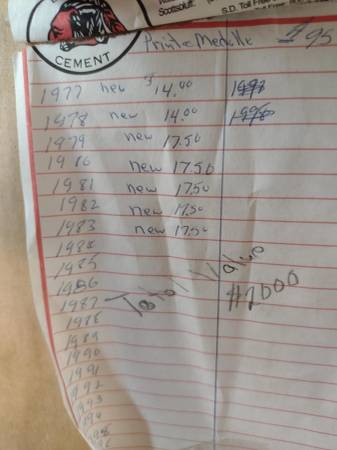 Scottsbluff.
S.D. Toll Free
CEMENT
$ 95
1977 new $14.00
1978 new 14.00
1979 new 17.50
1980 new 17.50
1981 new 17.50
1982 new 17.50
1983 new 17.50
1984
1985
1986
1987
Total Value
$2000
1988
1989
1990
1991
1992
1993